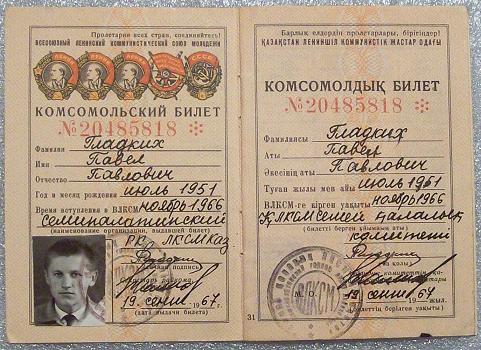 Пролетарии всех стран, соединяйтесь!
ВСЕСОЮЗНЫЙ ЛЕНИНСКИЙ КОММУНИСТИЧЕСКИЙ СОЮЗ МОЛОДЕЖИ
КОМСОМОЛЬСКИЙ БИЛЕТ
№20485818
Фамилия Гладких
Имя Павел
Отчество Павлович
Год и месяц рождения июль 1951
Время вступления в ВЛКСМ ноябрь 1966
Семипалатинский
(наименование организации, выдавшей билет)
РК ЛКСМ Каз.
подпись
19 сент. 1967 г.
(дата выдачи билета)
Барлық елдердің пролетарлары, бірігіңдер!
ҚАЗАҚСТАН ЛЕНИНШІЛ КОММУНИСТІК ЖАСТАР ОДАҒЫ
КОМСОМОЛДЫҚ БИЛЕТ
№20485818
Фамилиясы Гладких
Аты Павел
Әкесінің аты Павлович
Туған жылы мен айы июль 1951
ВЛКСМ-ге кірген уақыты ноябрь 1966
ҚЛКСМ Семей қалалық
(билетті берген ұйымның аты)
комитеті
М. О.
ВЛКСМ
19 сент. 67 жыл.
(билеттің берілген уақыты)
31